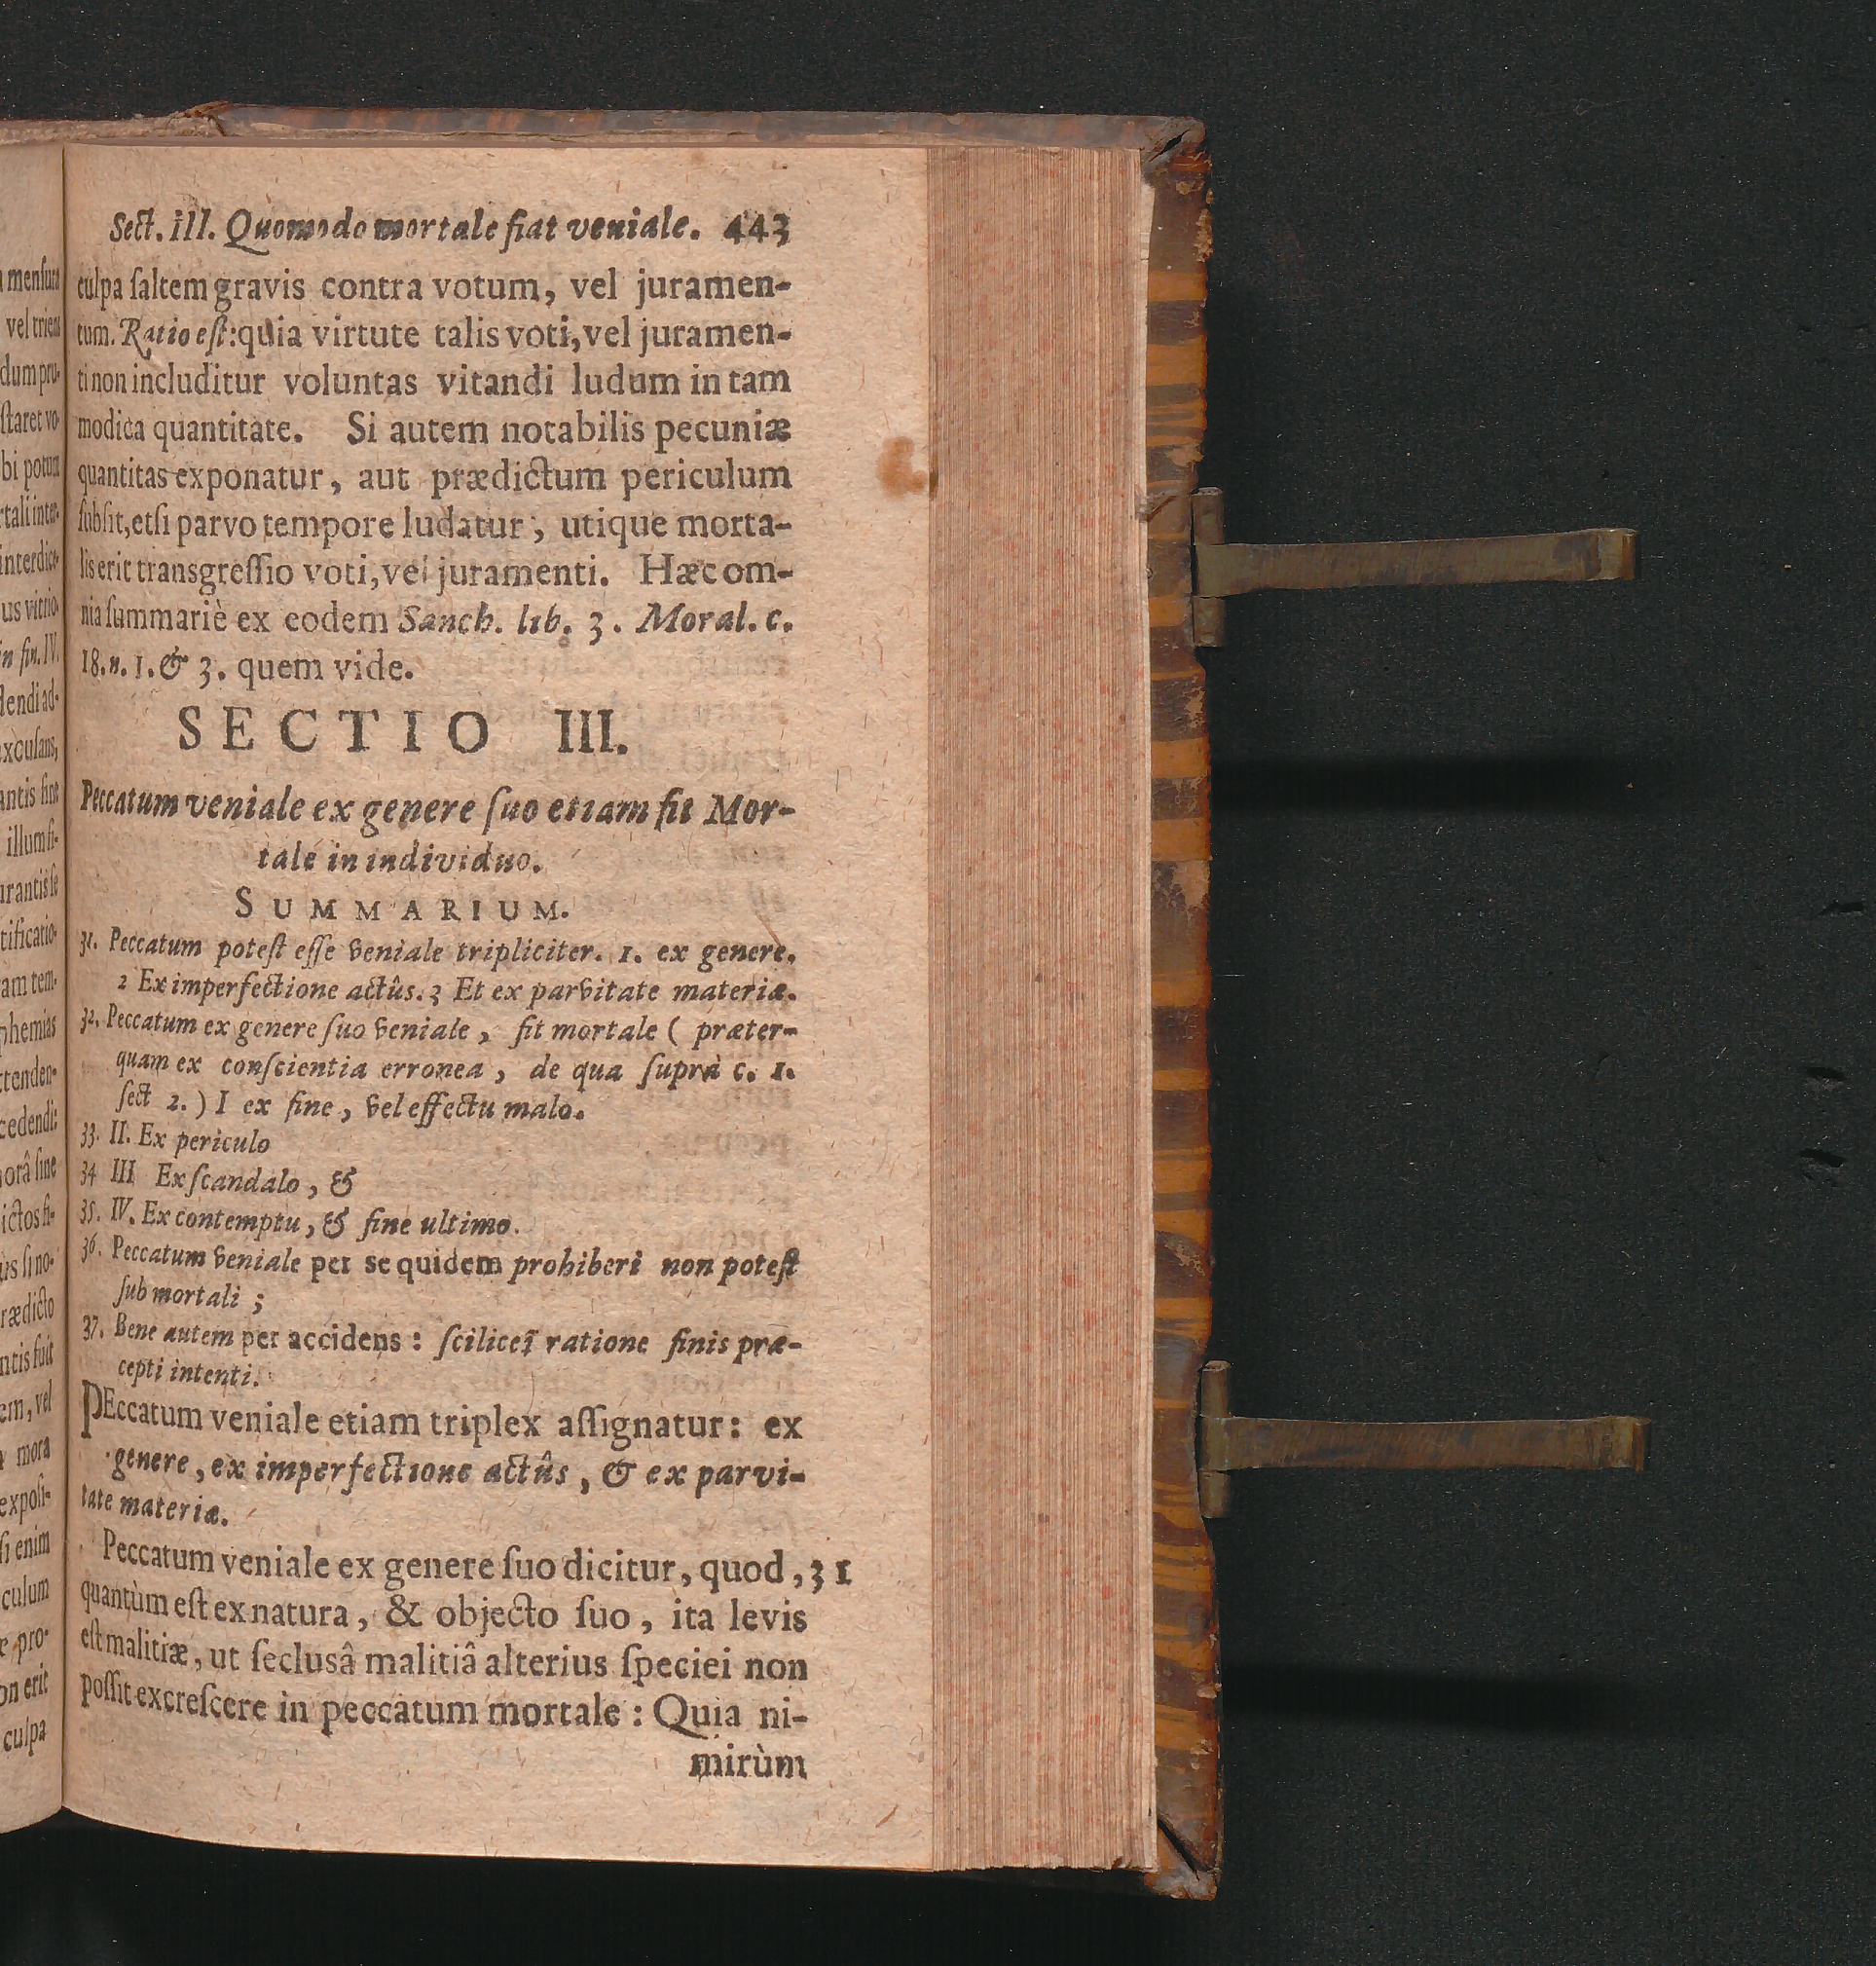 Sect. III. Quomodo mortale fiat veniale. 443
culpa ſaltem gravis contra votum, vel juramen-
tum. Ratio eſt: quia virtute talis voti, vel juramen-
ti non includitur voluntas vitandi ludum in tam
modica quantitate. Si autem notabilis pecuniæ
quantitas exponatur, aut prædictum periculum
ſubſit, etſi parvo tempore ludatur, utique morta-
lis erit transgreſſio voti, vel juramenti. Hæc om-
nia ſummariè ex eodem Sanch. lib. 3. Moral. c.
18. n. 1. & 3. quem vide.
SECTIO III.
Peccatum veniale ex genere ſuo etiam fit Mor-
tale in individuo.
SUMMARIUM.
31. Peccatum poteſt eſſe veniale tripliciter. 1. ex genere.
2 Ex imperfectione actûs. 3 Et ex parvitate materiæ.
32. Peccatum ex genere ſuo veniale, fit mortale ( præter-
quam ex conſcientia erronea, de qua ſuprà c. 1.
ſect 2. ) I ex fine, vel effectu malo.
33. II. Ex periculo
34 III Ex ſcandalo, &
35. IV. Ex contemptu, & fine ultimo.
36. Peccatum veniale per se quidem prohiberi non poteſt
ſub mortali ;
37. Bene autem per accidens : ſcilicet ratione finis præ-
cepti intenti.
PEccatum veniale etiam triplex aſſignatur: ex
genere, ex imperfectione actûs, & ex parvi-
tate materiæ.
Peccatum veniale ex genere ſuo dicitur, quod, 31
quantùm eſt ex natura, & objecto ſuo, ita levis
eſt malitiæ, ut ſecluſâ malitiâ alterius ſpeciei non
poſſit excreſcere in peccatum mortale : Quia ni-
mirùm